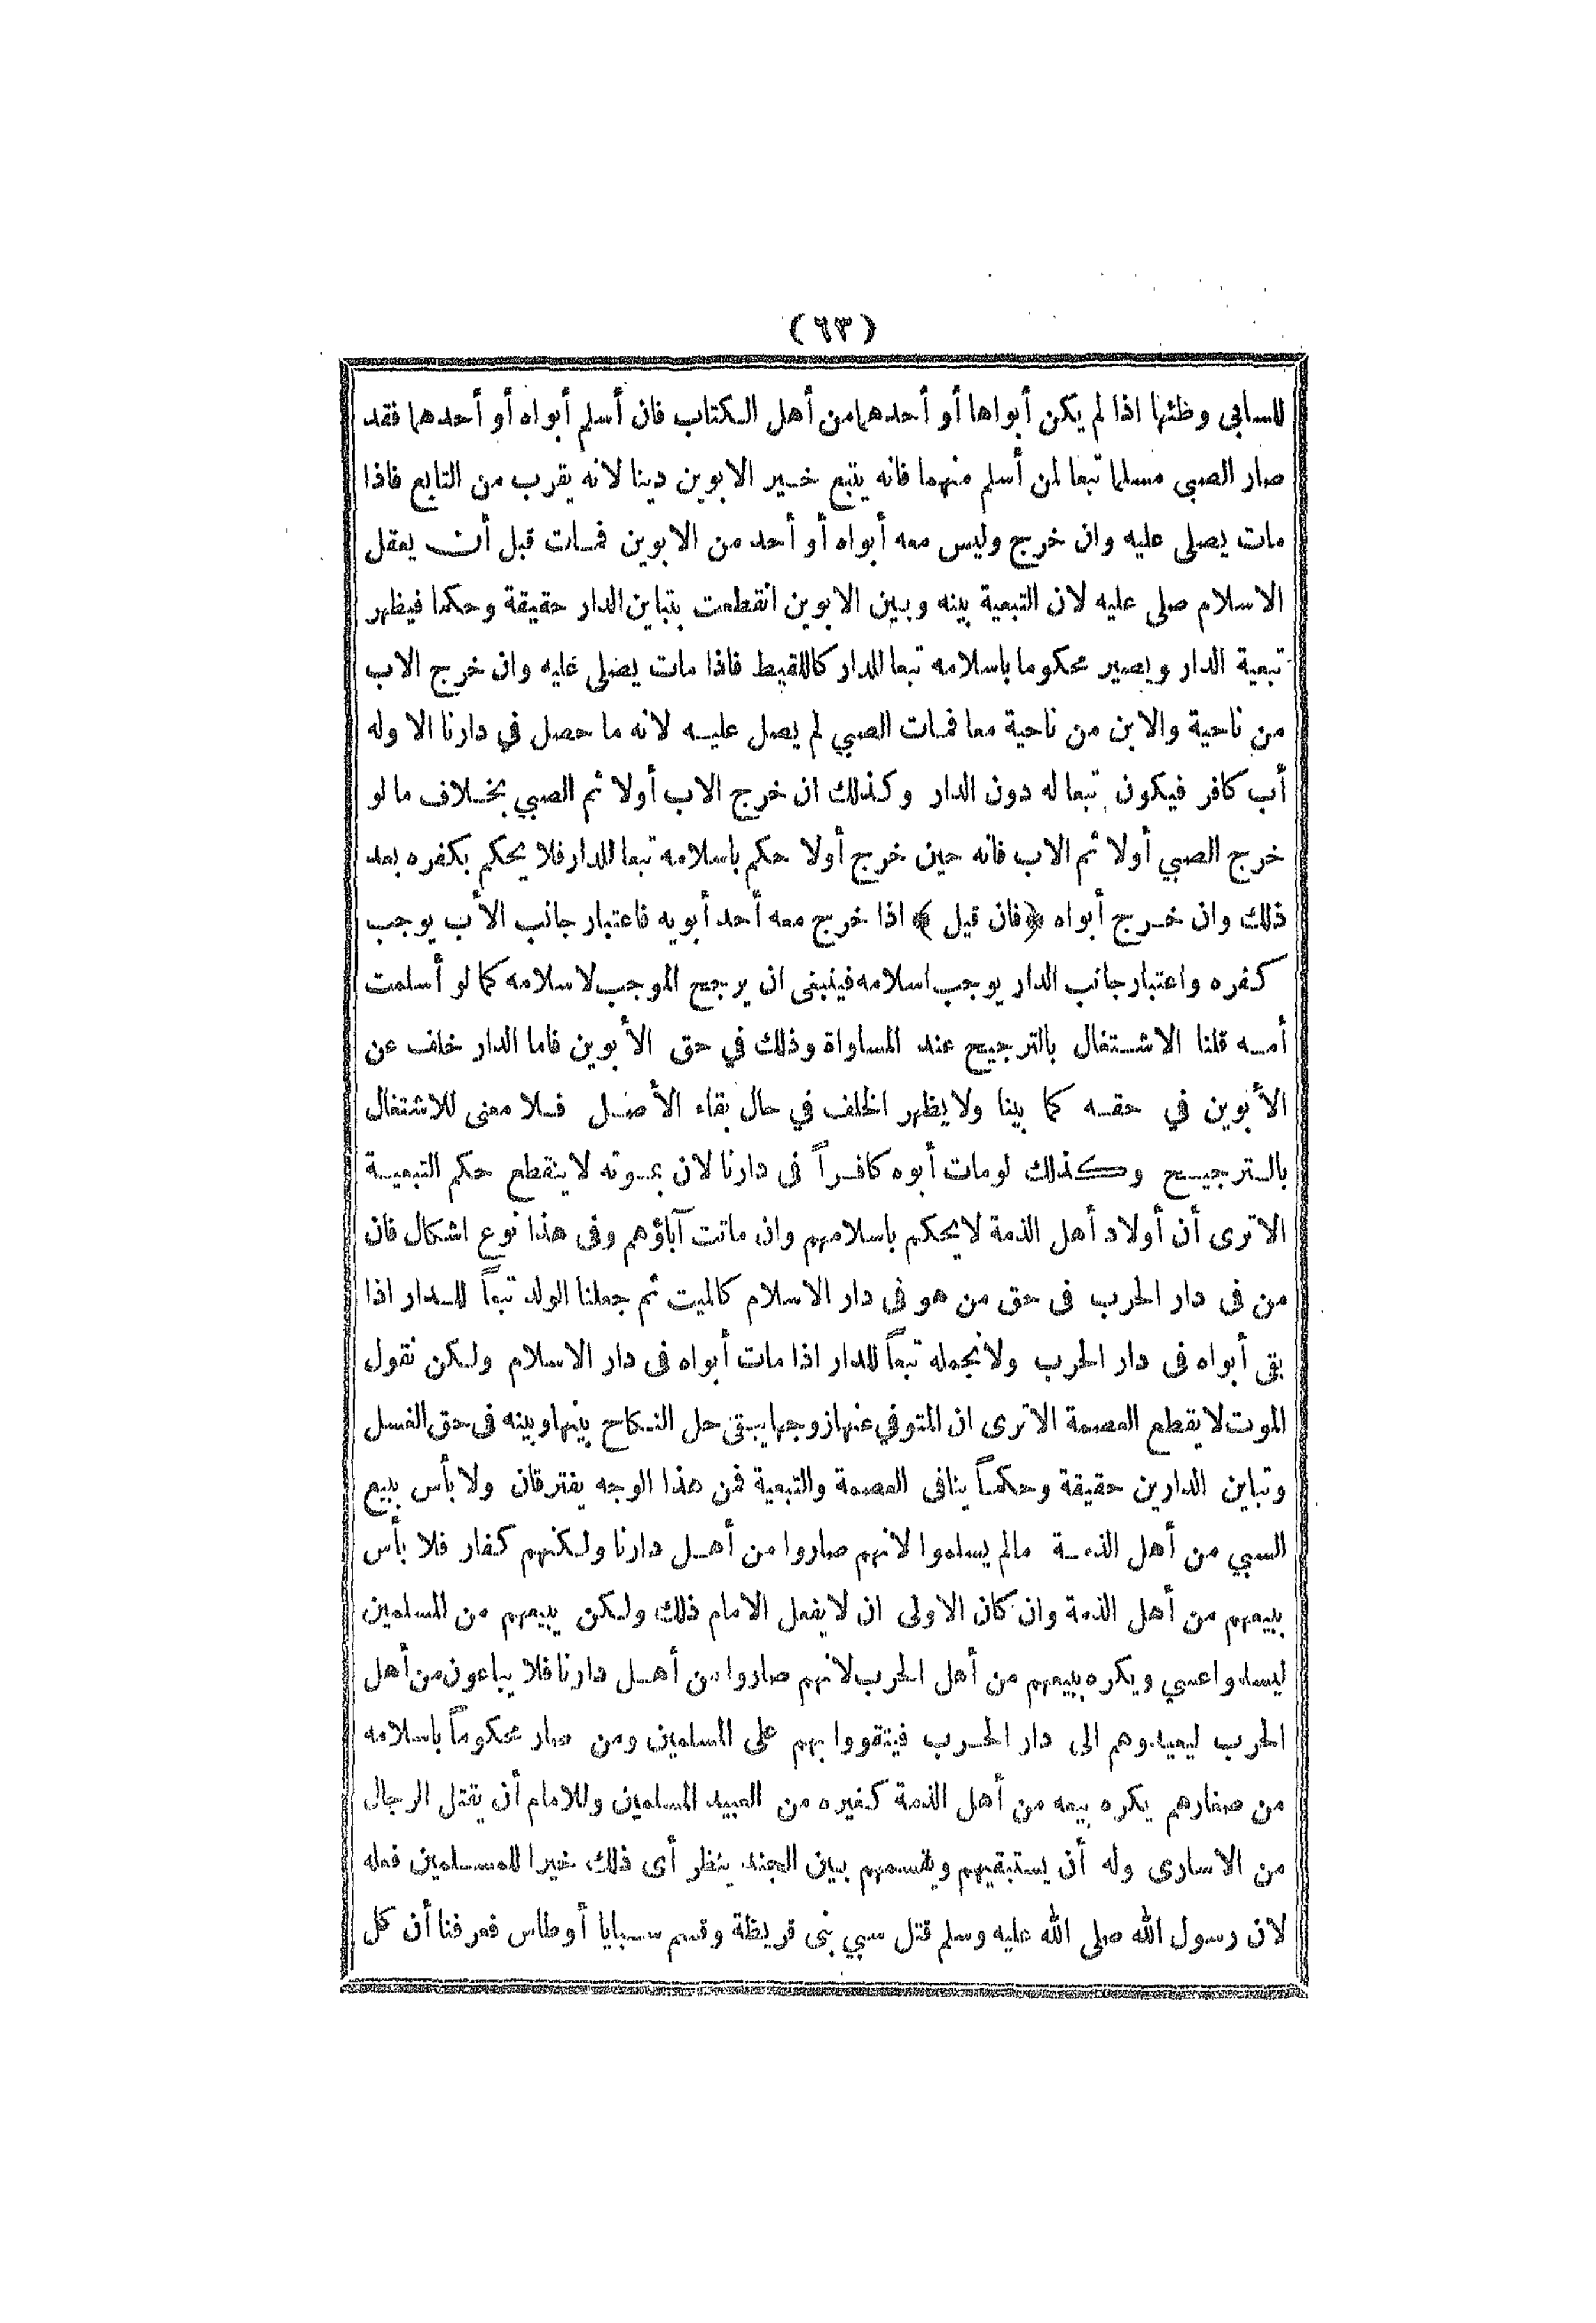 (٦٣)
للسابى وطئها اذا لم يكن أبواها أو أحدهما من أهل الكتاب فان أسلم أبواه أو أحدهما فقد
صار الصبى مسلما تبعا لمن أسلم منهما فانه يتبع خير الابوين دينا لانه يقرب من التابع فاذا
مات يصلى عليه وان خرج وليس معه أبواه أو أحد من الابوين فمات قبل أن يعقل
الاسلام صلى عليه لان التبعية بينه وبين الابوين انقطعت بتباين الدار حقيقة وحكما فيظهر
تبعية الدار ويصير محكوما باسلامه تبعا للدار كاللقيط فاذا مات يصلى عليه وان خرج الاب
من ناحية والابن من ناحية معا فمات الصبي لم يصل عليه لانه ما حصل في دارنا الا وله
أب كافر فيكون تبعا له دون الدار وكذلك ان خرج الاب أولا ثم الصبي بخلاف ما لو
خرج الصبي أولا ثم الاب فانه حين خرج أولا حكم باسلامه تبعا للدار فلا يحكم بكفره بعد
ذلك وان خرج أبواه ﴿فان قيل﴾ اذا خرج معه أحد أبويه فاعتبار جانب الأب يوجب
كفره واعتبار جانب الدار يوجب اسلامه فينبغى ان يرجح الموجب لاسلامه كما لو أسلمت
أمه قلنا الاشتغال بالترجيح عند المساواة وذلك في حق الأبوين فاما الدار خلف عن
الأبوين في حقه كما بينا ولا يظهر الخلف في حال بقاء الأصل فلا معنى للاشتغال
بالترجيح وكذلك لو مات أبوه كافراً فى دارنا لان بموته لا ينقطع حكم التبعية
الا ترى أن أولاد أهل الذمة لا يحكم باسلامهم وان ماتت آباؤهم وفى هذا نوع اشكال فان
من فى دار الحرب فى حق من هو فى دار الاسلام كالميت ثم جعلنا الولد تبعاً للدار اذا
بقى أبواه فى دار الحرب ولا نجعله تبعاً للدار اذا مات أبواه فى دار الاسلام ولكن نقول
الموت لا يقطع العصمة الا ترى ان المتوفي عنها زوجها يبقى حل النكاح بينها وبينه فى حق الغسل
وتباين الدارين حقيقة وحكماً ينافى العصمة والتبعية فمن هذا الوجه يفترقان ولا بأس ببيع
السبي من أهل الذمة مالم يسلموا لانهم صاروا من أهل دارنا ولكنهم كفار فلا بأس
ببيعهم من أهل الذمة وان كان الاولى ان لا يفعل الامام ذلك ولكن يبيعهم من المسلمين
ليسلموا عسي ويكره بيعهم من أهل الحرب لانهم صاروا من أهل دارنا فلا يباعون من أهل
الحرب ليعيدوهم الى دار الحرب فيتقووا بهم على المسلمين ومن صار محكوماً باسلامه
من صغارهم يكره بيعه من أهل الذمة كغيره من العبيد المسلمين وللامام أن يقتل الرجال
من الاسارى وله أن يستبقيهم ويقسمهم بين الجند ينظر أى ذلك خيرا للمسلمين فعله
لان رسول الله صلى الله عليه وسلم قتل سبي بنى قريظة وقسم سبايا أوطاس فعرفنا أن كل